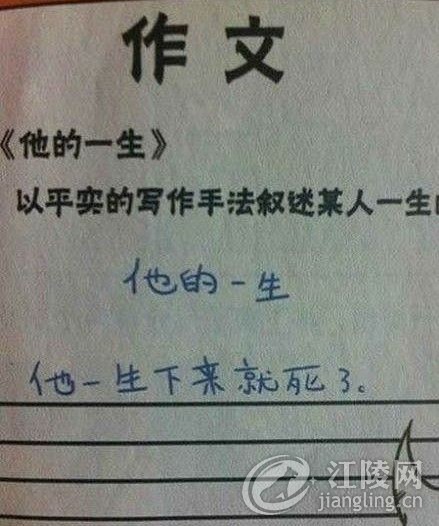 作文
《他的一生》
以平实的写作手法叙述某人一生
他的一生
他一生下来就死了。
江陵网
jiangling.cn